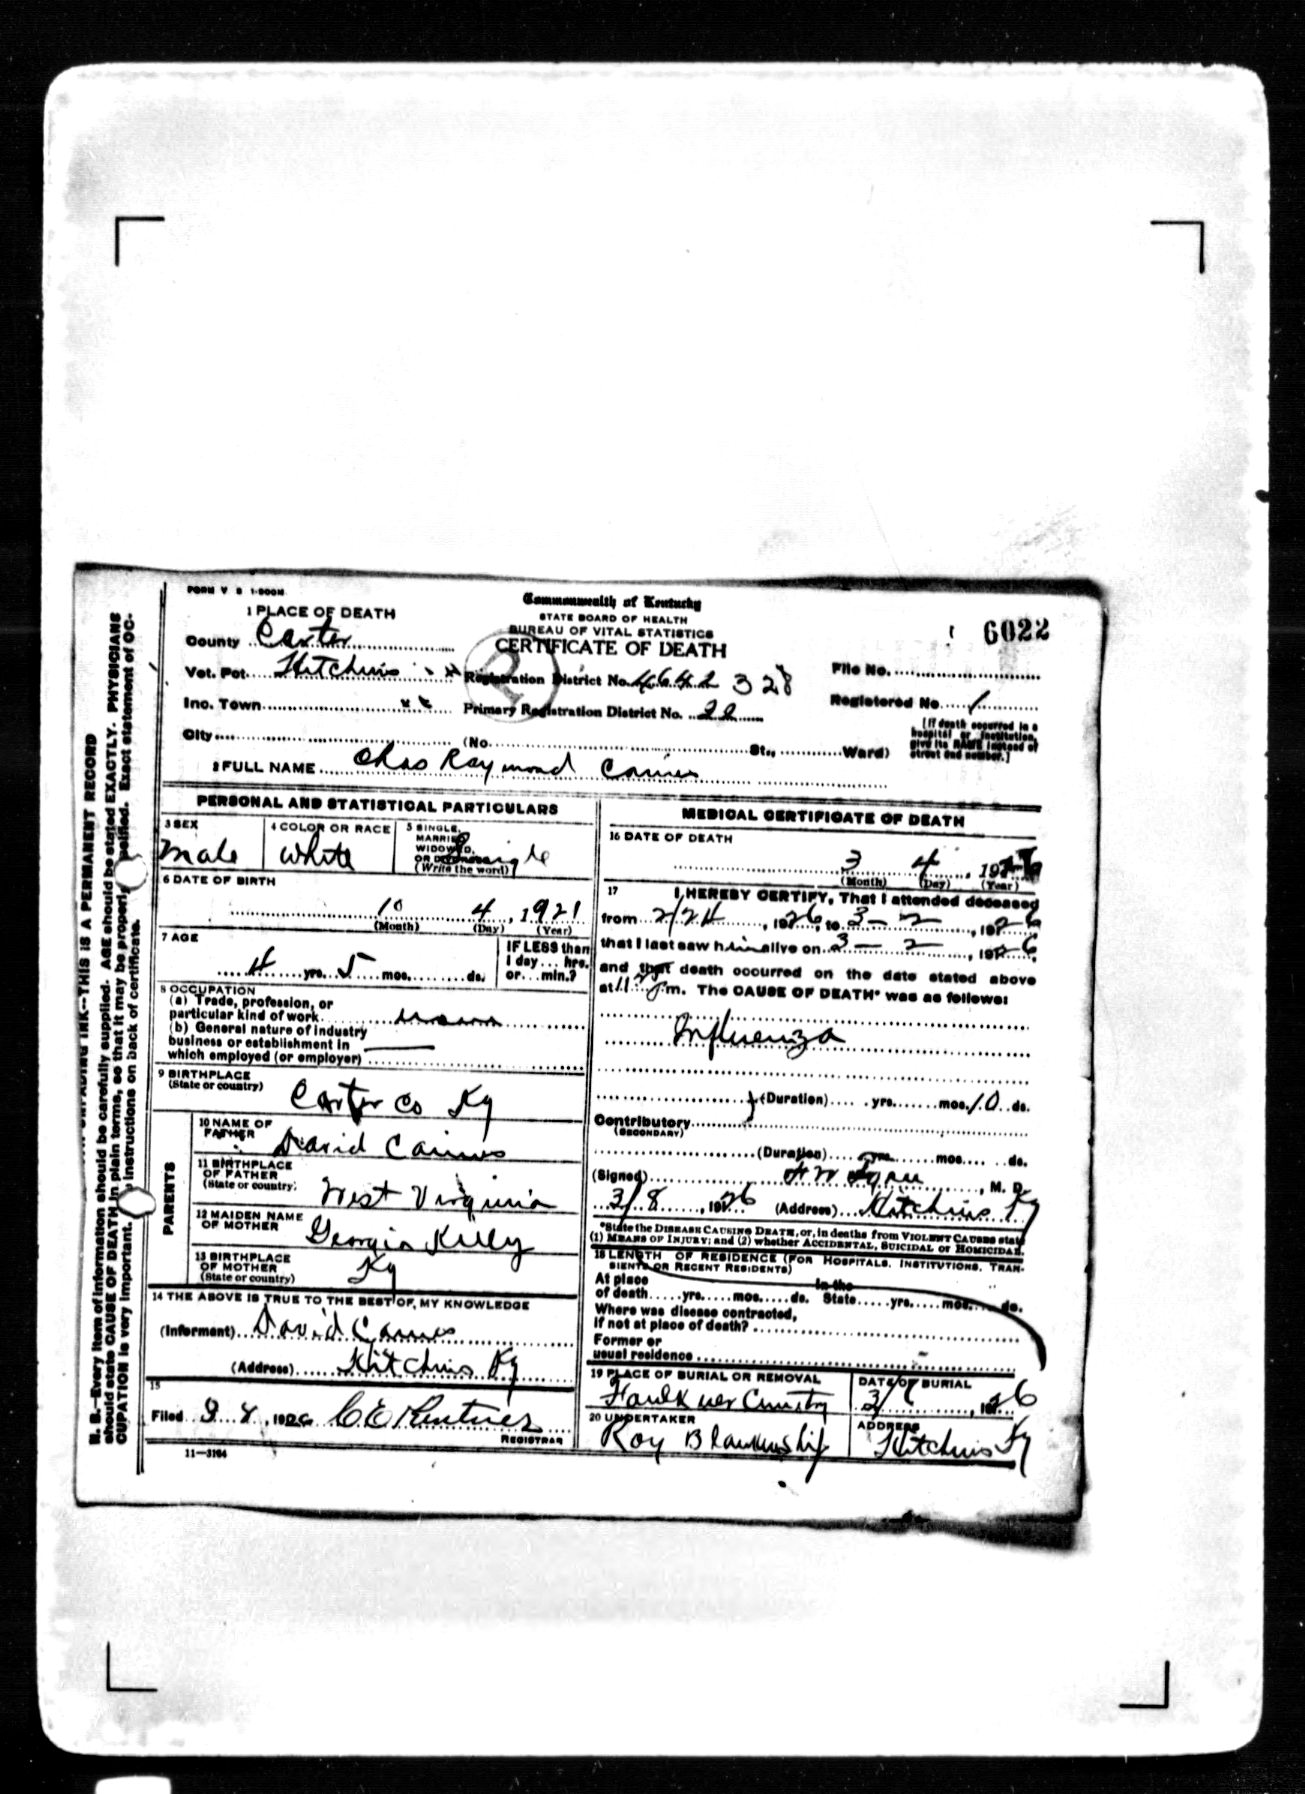 FORM V S 1-500M
Commonwealth of Kentucky
STATE BOARD OF HEALTH
BUREAU OF VITAL STATISTICS
CERTIFICATE OF DEATH
6022
1 PLACE OF DEATH
County Carter
Vot. Pct. Hitchins
Registration District No. 328
File No.
Inc. Town
Primary Registration District No.
Registered No. 1
City (No. St., Ward)
[If death occurred in a hospital or institution, give its NAME instead of street and number.]
2 FULL NAME Chas Raymond
PERSONAL AND STATISTICAL PARTICULARS
3 SEX Male
4 COLOR OR RACE White
5 SINGLE, MARRIED, WIDOWED, OR DIVORCED (Write the word) Single
6 DATE OF BIRTH
10 4, 1921
(Month) (Day) (Year)
7 AGE
4 yrs. 5 mos. ds.
IF LESS than 1 day... hrs. or... min.?
8 OCCUPATION
(a) Trade, profession, or
particular kind of work
(b) General nature of industry
business or establishment in
which employed (or employer)
9 BIRTHPLACE
(State or country) Carter Co Ky
PARENTS
10 NAME OF FATHER David
11 BIRTHPLACE OF FATHER (State or country) West Virginia
12 MAIDEN NAME OF MOTHER Georgia
13 BIRTHPLACE OF MOTHER (State or country) Ky
14 THE ABOVE IS TRUE TO THE BEST OF MY KNOWLEDGE
(Informant) David
(Address) Hitchins Ky
15
Filed 1926 C E
REGISTRAR
11—3184
MEDICAL CERTIFICATE OF DEATH
16 DATE OF DEATH
3 4, 1926
(Month) (Day) (Year)
17 I HEREBY CERTIFY, That I attended deceased
from 2/24, 1926, to 3-2, 1926
that I last saw him alive on 3-2, 1926
and that death occurred on the date stated above
at 11 m. The CAUSE OF DEATH* was as follows:
Influenza
(Duration) yrs. mos. 10 ds.
Contributory
(SECONDARY)
(Duration) yrs. mos. ds.
(Signed) M. D.
3/8, 1926 (Address) Hitchins Ky
*State the DISEASE CAUSING DEATH, or, in deaths from VIOLENT CAUSES state
(1) MEANS OF INJURY; and (2) whether ACCIDENTAL, SUICIDAL or HOMICIDAL.
18 LENGTH OF RESIDENCE (FOR HOSPITALS, INSTITUTIONS, TRAN-
SIENTS OR RECENT RESIDENTS)
At place In the
of death yrs. mos. ds. State yrs. mos. ds.
Where was disease contracted,
if not at place of death?
Former or
usual residence
19 PLACE OF BURIAL OR REMOVAL
DATE OF BURIAL
1926
20 UNDERTAKER
ADDRESS
Roy Blankenship
Hitchins Ky
N. B.—Every item of information should be carefully supplied. AGE should be stated EXACTLY. PHYSICIANS
should state CAUSE OF DEATH in plain terms, so that it may be properly classified. Exact statement of OC-
CUPATION is very important. instructions on back of certificate.
INK—THIS IS A PERMANENT RECORD